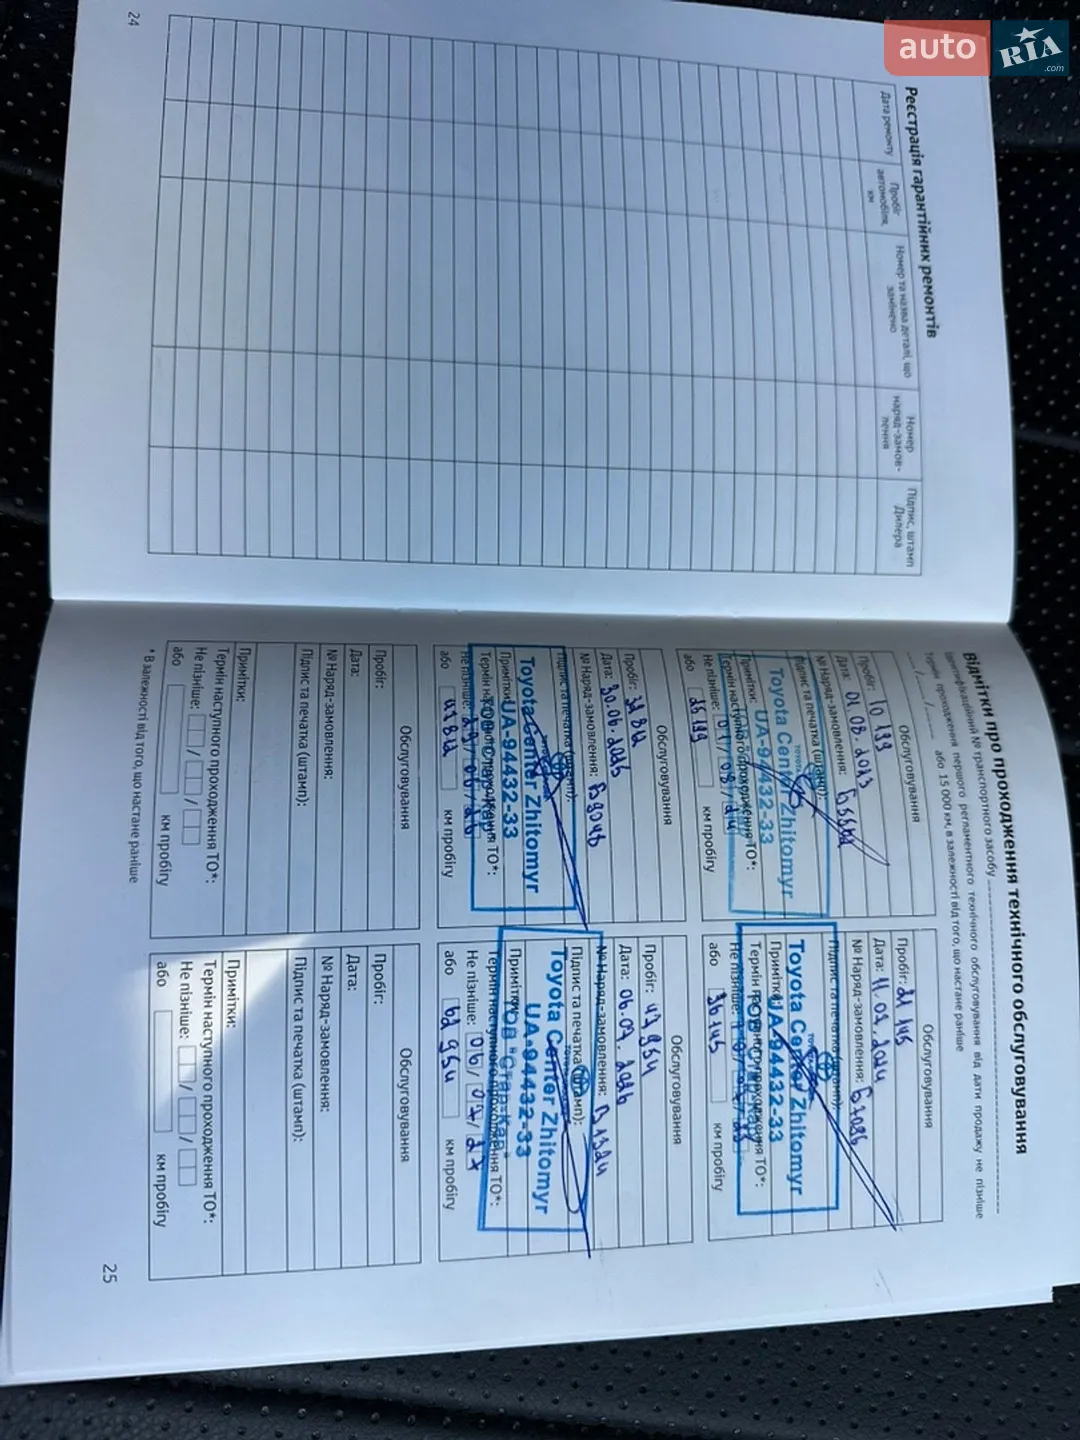 auto
RIA
.com
24
Реєстрація гарантійних ремонтів
Дата ремонту
Пробіг автомобіля, км
Номер та назва деталі, що замінено
Номер наряд-замов-лення
Підпис, штамп Дилера
Відмітки про проходження технічного обслуговування
Ідентифікаційний № транспортного засобу
Термін проходження першого регламентного технічного обслуговування від дати продажу не пізніше
або 15 000 км, в залежності від того, що настане раніше
Обслуговування
Пробіг: 10 199
Дата: 01.08.2023
№ Наряд-замовлення:
Підпис та печатка (штамп):
Toyota Center Zhitomyr
Примітки: UA-94432-33
Термін наступного проходження ТО*:
Не пізніше:
або 25199 км пробігу
Обслуговування
Пробіг: 21 145
Дата: 11.07.2024
№ Наряд-замовлення:
Підпис та печатка (штамп):
Toyota Center Zhitomyr
Примітки: UA-94432-33
Термін наступного проходження ТО*:
Не пізніше:
або 36145 км пробігу
Обслуговування
Пробіг:
Дата: 30.06.2025
№ Наряд-замовлення:
Підпис та печатка (штамп):
Toyota Center Zhitomyr
Примітки: UA-94432-33
Термін наступного проходження ТО*:
Не пізніше:
або км пробігу
Обслуговування
Пробіг: 47 954
Дата: 06.07.2026
№ Наряд-замовлення:
Підпис та печатка (штамп):
Toyota Center Zhitomyr
UA-94432-33
Примітки: ТОВ "Стар-Кар"
Термін наступного проходження ТО*:
Не пізніше: 06/07/27
або 62954 км пробігу
Обслуговування
Пробіг:
Дата:
№ Наряд-замовлення:
Підпис та печатка (штамп):
Примітки:
Термін наступного проходження ТО*:
Не пізніше: / /
або км пробігу
Обслуговування
Пробіг:
Дата:
№ Наряд-замовлення:
Підпис та печатка (штамп):
Примітки:
Термін наступного проходження ТО*:
Не пізніше: / /
або км пробігу
* В залежності від того, що настане раніше
25